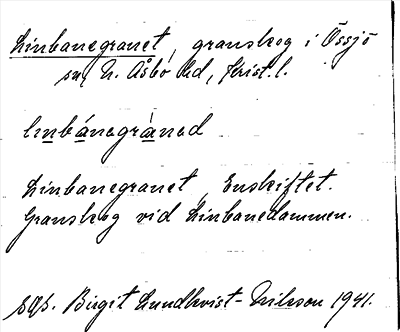 Linbanegranet, granskog i Össjö
sn, N. Åsbo hd, Krist. l.
linbánegrànəd
Linbanegranet, Enskiftet.
Granskog vid Linbanedammen.
Birgit Lundkvist-Nilsson 1941.